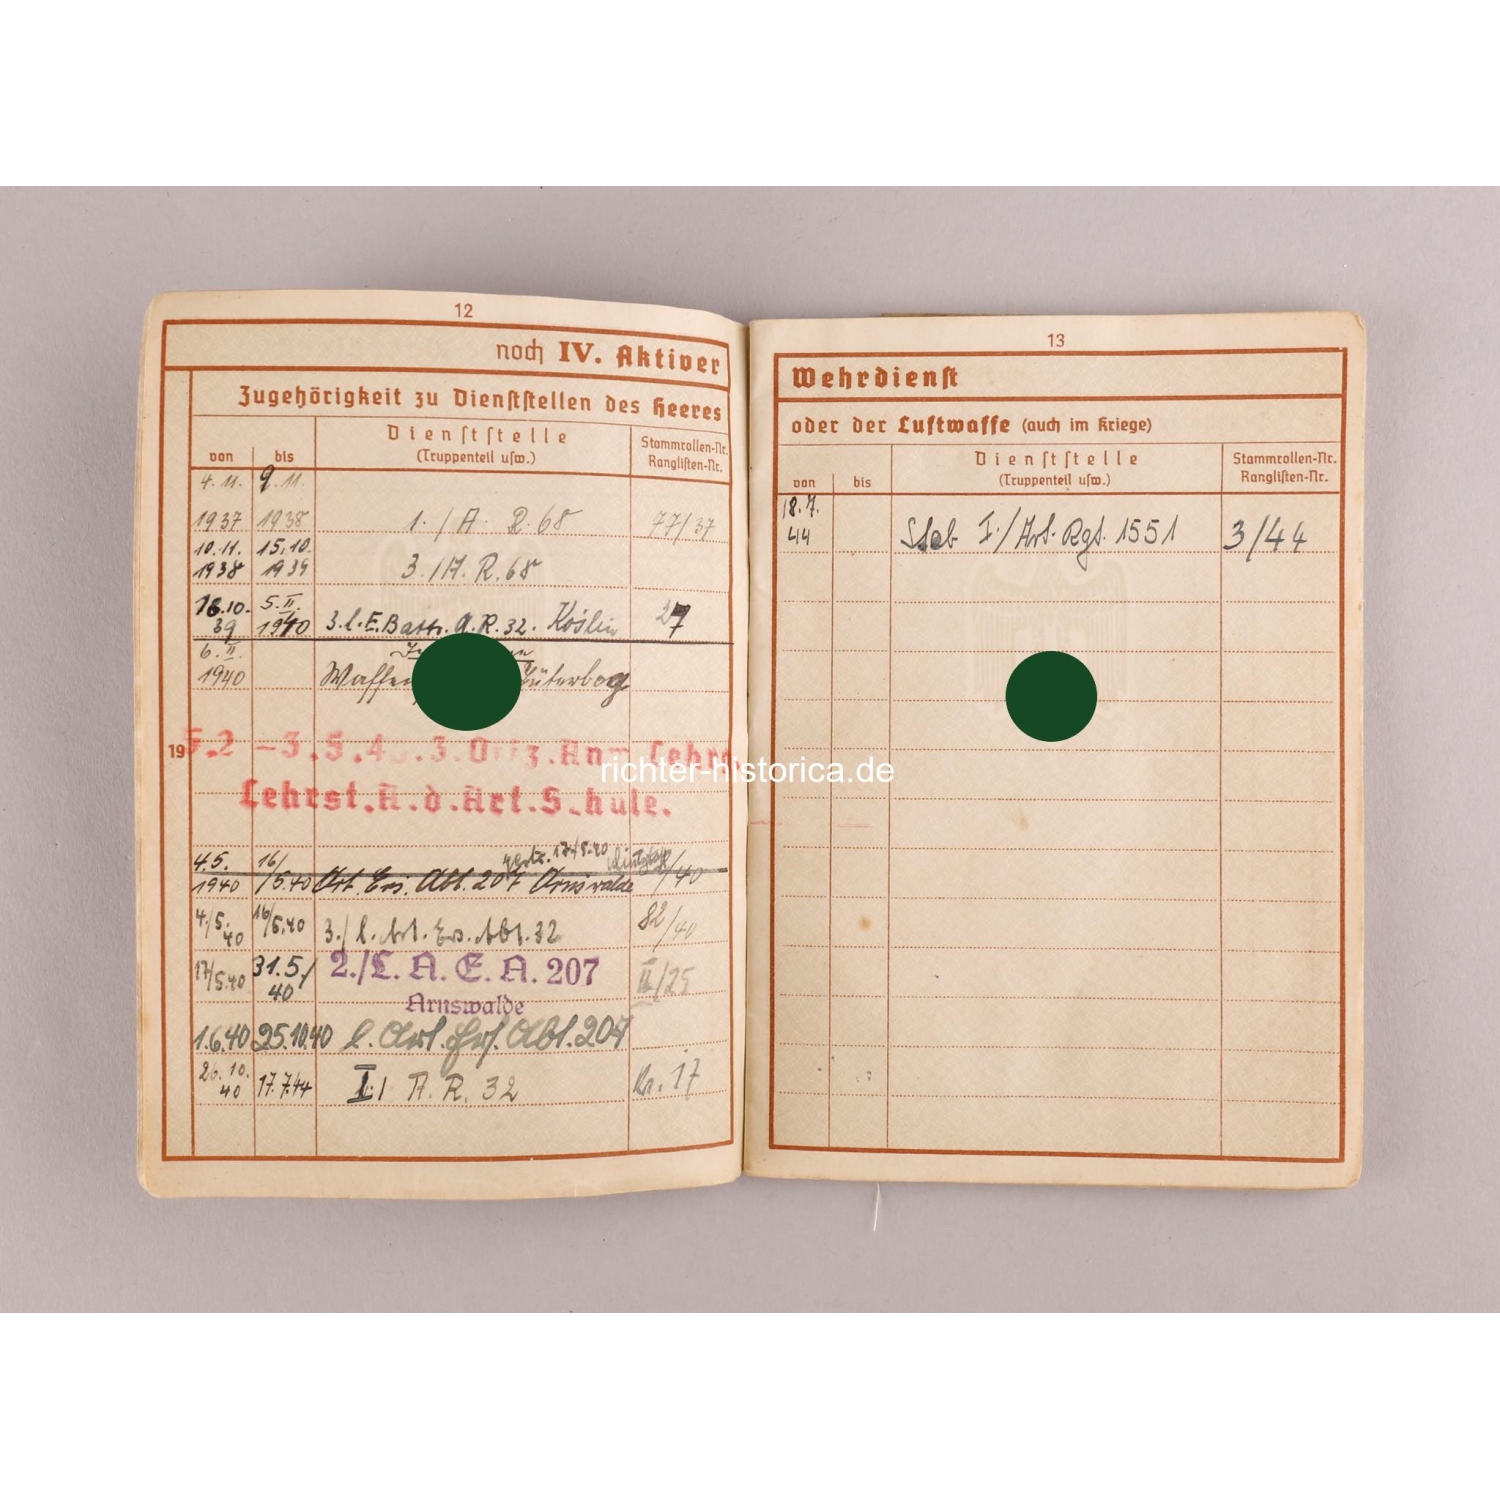 12
noch IV. Aktiver
Zugehörigkeit zu Dienststellen des Heeres
von bis Dienststelle (Truppenteil usw.) Stammrollen-Nr. Ranglisten-Nr.
4.11. 1937 9.11. 1938 1./A. R. 68 77/37
10.11. 1938 15.10. 1939 3./A. R. 68
16.10. 39 5.II. 1940 3.l.E.Battr. A.R. 32. Köslin 27
6.II. 1940 Waffen Jüterbog
19 5.2 - 3.5.40. 3. Offz. Anw. Lehrg.
Lehrst. A. d. Art. Schule.
4.5. 1940 16/5.40 Art. Ers. Abt. 207 Arnswalde /40
17/5.40
4/5. 40 16/5.40 3./l. Art. Ers. Abt. 32 82/40
17/5.40 31.5/40 2./L. A. E. A. 207 II/25
Arnswalde
1.6.40 25.10.40 l. Art. Ers. Abt. 207
26.10. 40 17.7.44 I./ A. R. 32 Nr. 17
13
Wehrdienst
oder der Luftwaffe (auch im Kriege)
von bis Dienststelle (Truppenteil usw.) Stammrollen-Nr. Ranglisten-Nr.
18.7. 44 Stab I./Art. Rgt. 1551 3/44
richter-historica.de